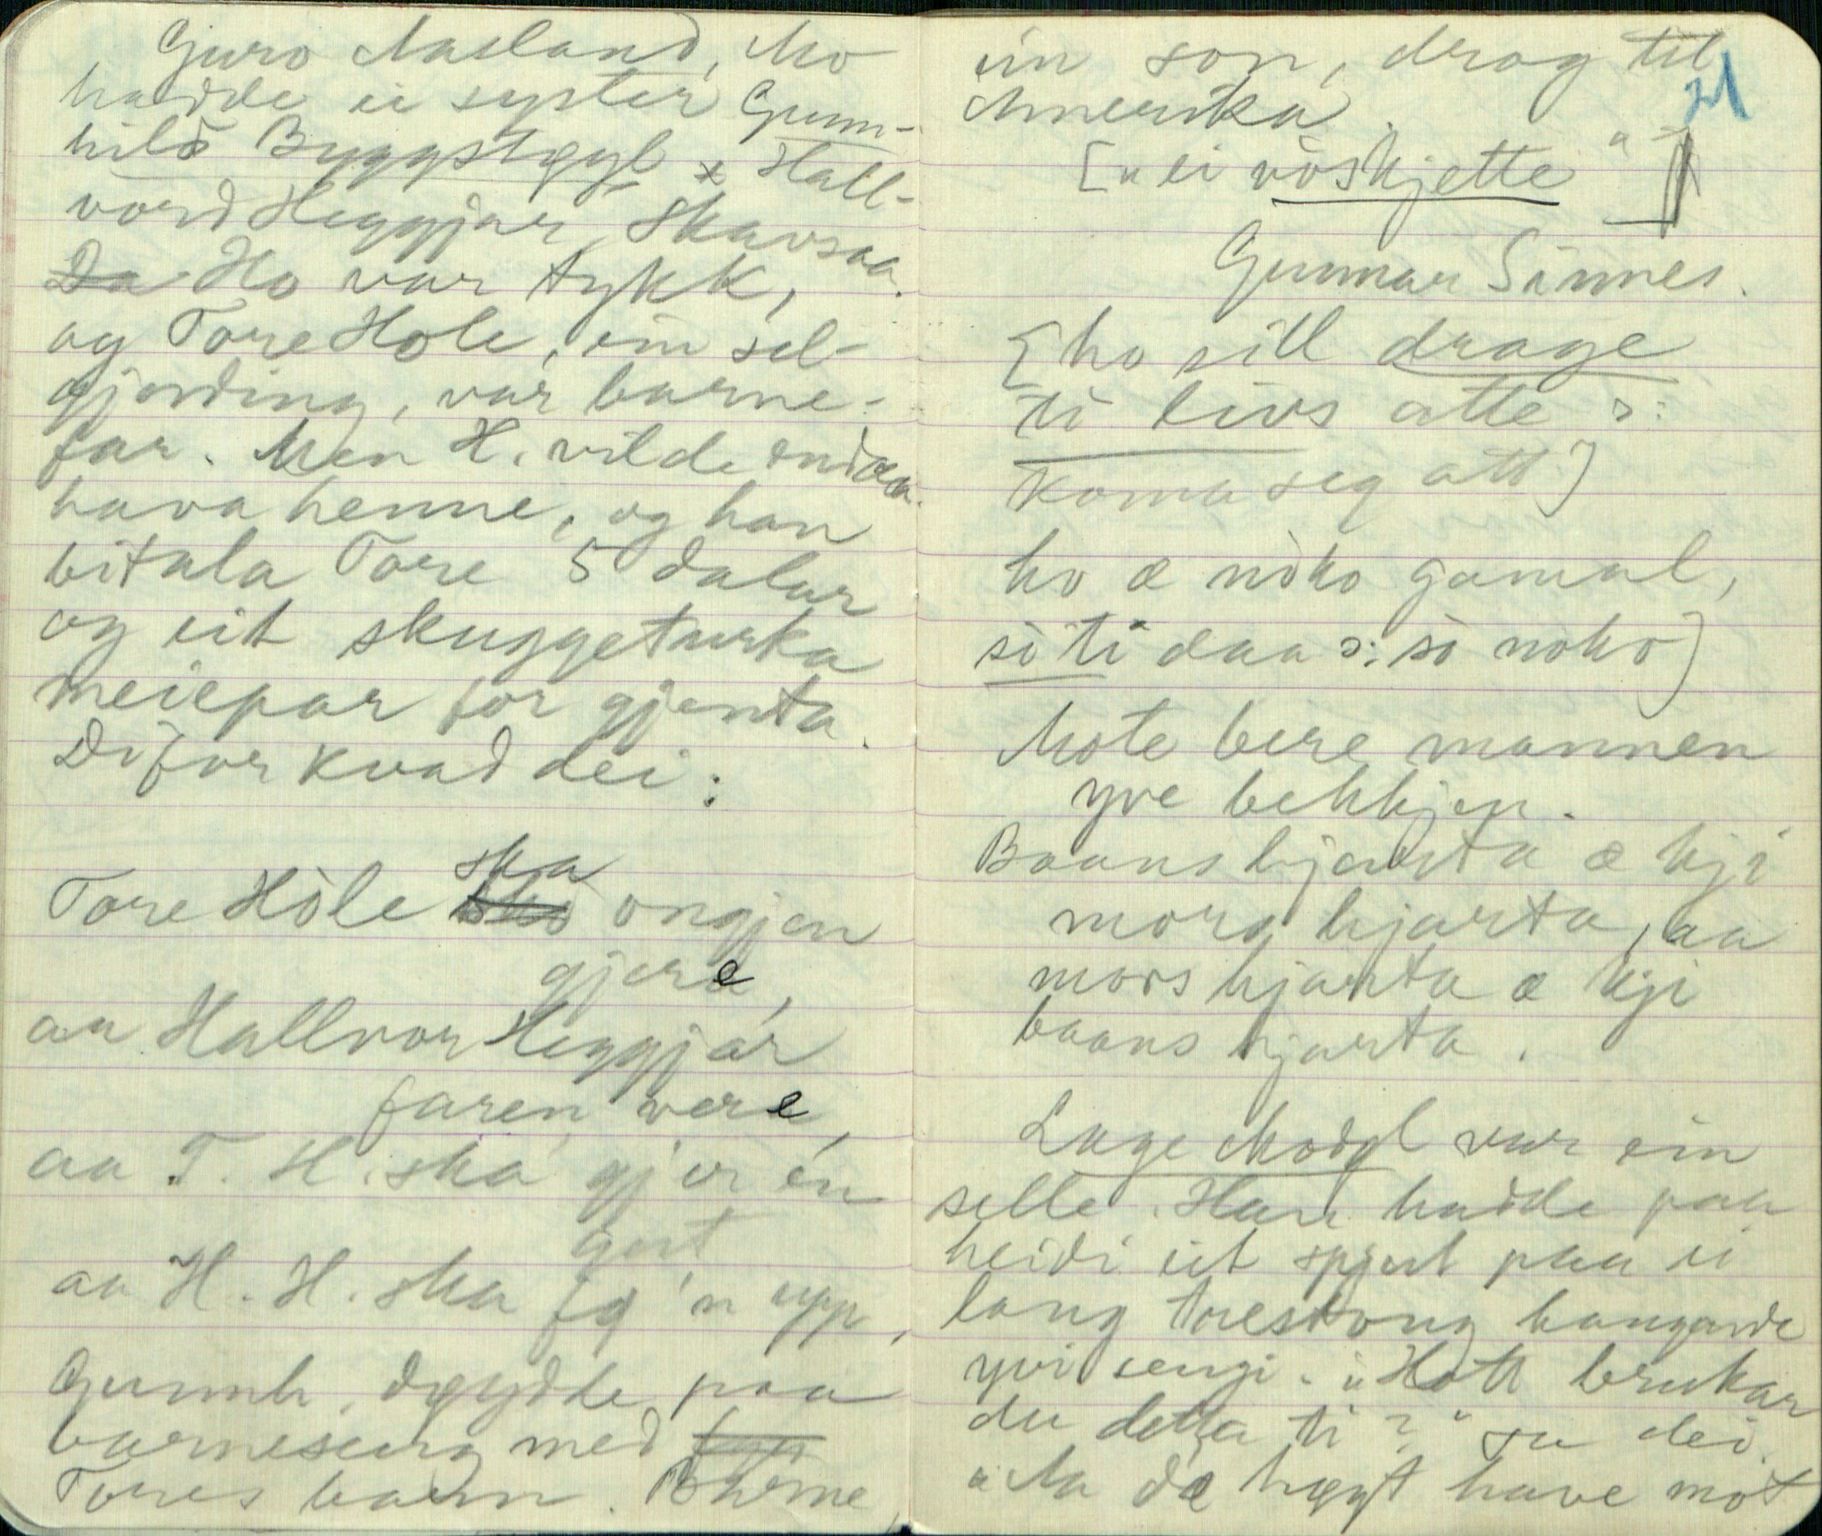 Guro Aasland, Mo
hadde ei syster Gunn-
hild Byggstøyl x Hall-
vord Heggjar, Skavsaa.
Da Ho var tykk,
og Tore Hole, ein sel-
gjording, var barne-
far. Men H. vilde endaa
hava henne, og han
bitala Tore 5 dalar
og eit skuggeturka
meiepar for gjenta.
Difor kvad dei:
Tore Hòle ska ongjen
gjere,
aa Hallvor Heggjar
faren vere,
aa T. H. ska gjer én
gort
aa H. H. ska fø 'n upp,
Gunnh. døydde paa
barneseng med
Tores barn. Borne,
ein son, drog til
Amerika.
21
[„ei vòskjette"]
Gunnar Sinnes.
[ho vill drage
ti livs atte ɔ:
koma seg att]
ho æ nòko gamal,
sò ti daa ɔ: sò noko]
Mote bere mannen
yve bekkjen.
Baans hjarta æ kji
mors hjarta, aa
mors hjarta æ kji
baans hjarta.
Lage Modøl var ein
selle. Han hadde paa
heidi eit spjut paa ei
lang trestong hangande
yvi sengi. „Hòtt brukar
du detta ti?" sa dei.
„Aa dæ høgt have mot